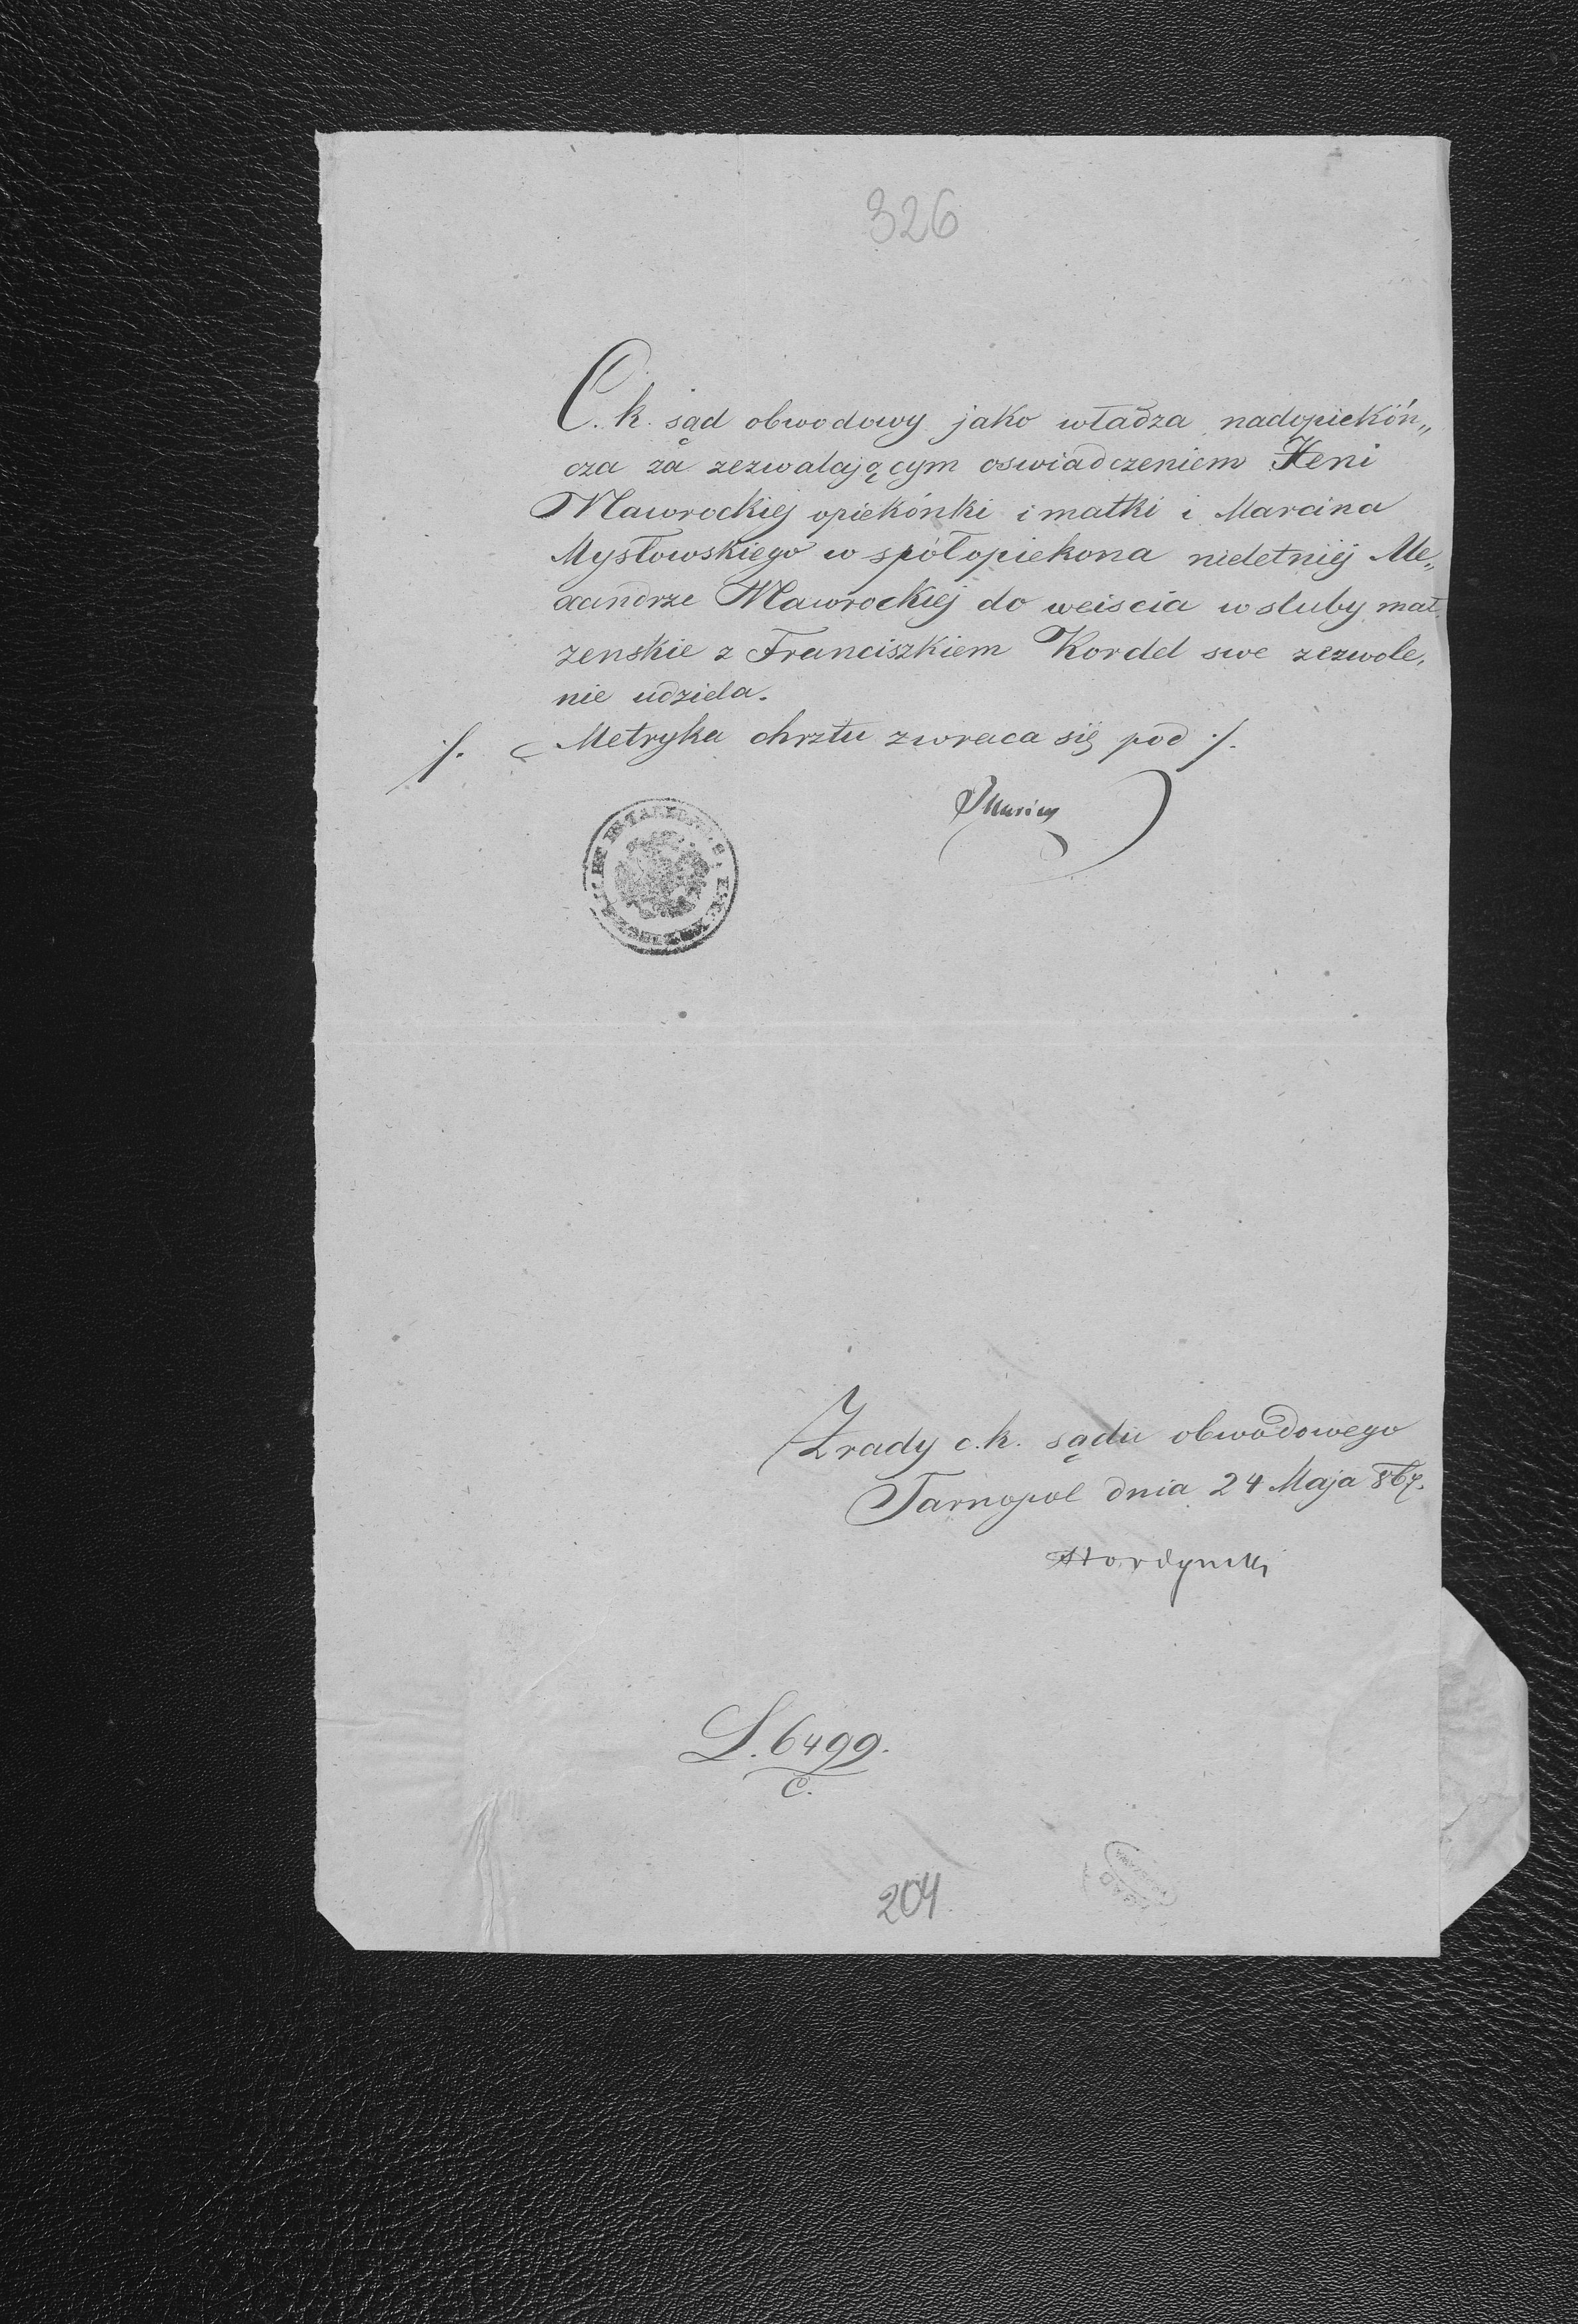 326
C. k. sąd obwodowy jako władza nadopiekóń„
cza za zezwalającym oswiadczeniem Heni
Mawrockiej opiekónki i matki i Marcina
Mysłowskiego w spółopiekona nieletniéj Ale„
xandrze Mawrockiej do weiscia w sluby mał
zenskie z Franciszkiem Kordel swe zezwole,
nie udziela.
·/. Metryka chrztu zwraca się pod ·/.
Z rady c. k. sądu obwodowego
Tarnopol dnia 24 Maja 867.
L. 6499.
C.
204